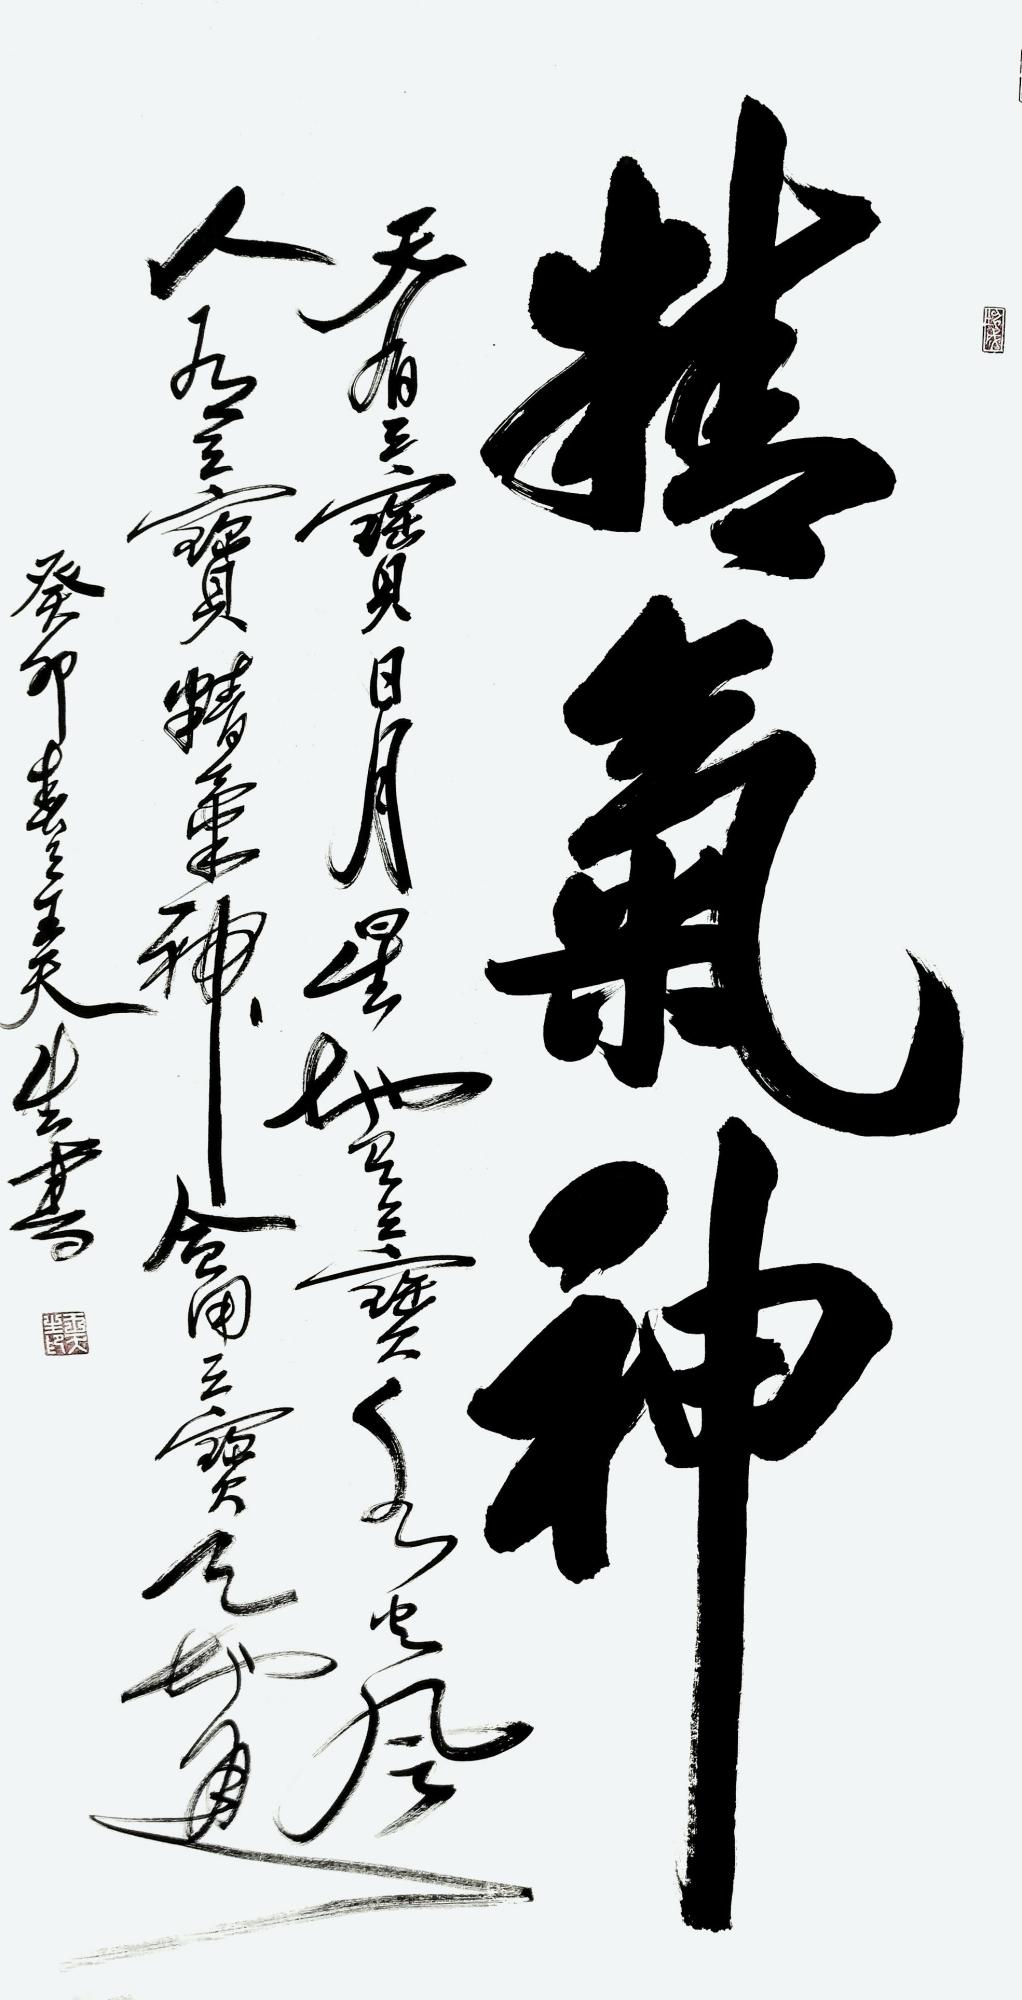 精氣神
天有三寶日月星地有三寶水火風
人有三寶精氣神合用三寶天地通
癸卯春之王天生書